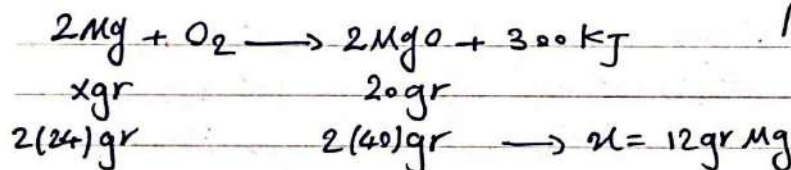 2Mg + O₂ ⟶ 2MgO + 300 KJ /
xgr 20gr
2(24)gr 2(40)gr ⟶ x = 12gr Mg